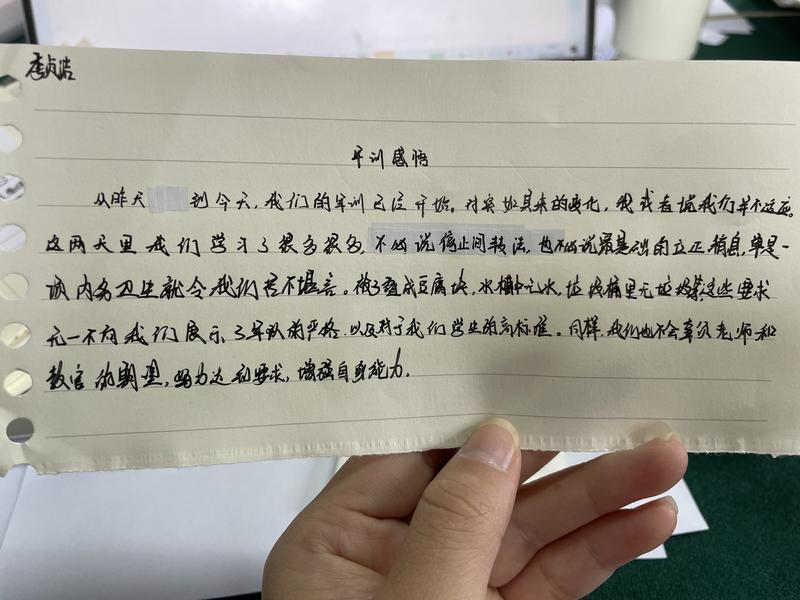 李贞浩
军训感悟
从昨天到今天，我们的军训已经开始。对突如其来的变化，我或者说我们并不适应。
这两天里我们学习了很多很多，不必说停止间转法，也不必说最基础的立正稍息，单是一
项内务卫生就令我们苦不堪言。被子叠成豆腐块，水槽中无水，垃圾桶里无垃圾等这些要求
无一不向我们展示了军队的严格，以及对于我们学生的高标准。同样，我们也不会辜负老师和
教官的期望，努力达到要求，增强自身能力。